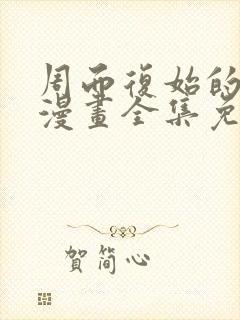 周而復始的
漫畫全集免
賀簡心